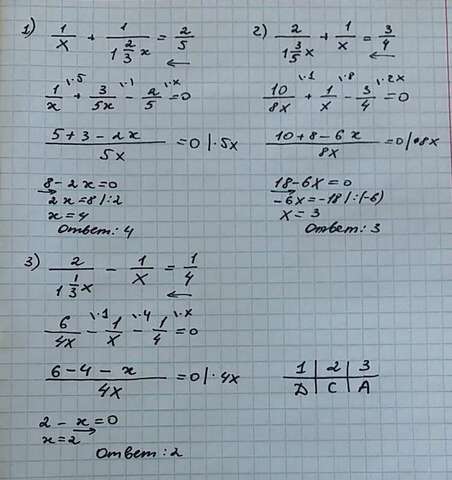 1) 1/x + 1/(1 2/3 x) = 2/5
1/x \·5 + 3/5x \·1 - 2/5 \·x = 0
(5+3-2x)/5x = 0 |·5x
8-2x=0
2x=8|:2
x=4
Ответ: 4
2) 2/(1 3/5 x) + 1/x = 3/4
10/8x \·1 + 1/x \·8 - 3/4 \·2x = 0
(10+8-6x)/8x = 0 |·8x
18-6x=0
-6x=-18|:(-6)
x=3
Ответ: 3
3) 2/(1 1/3 x) - 1/x = 1/4
6/4x \·1 - 1/x \·4 - 1/4 \·x = 0
(6-4-x)/4x = 0 |·4x
2-x=0
x=2
Ответ: 2
1 | 2 | 3
D | C | A